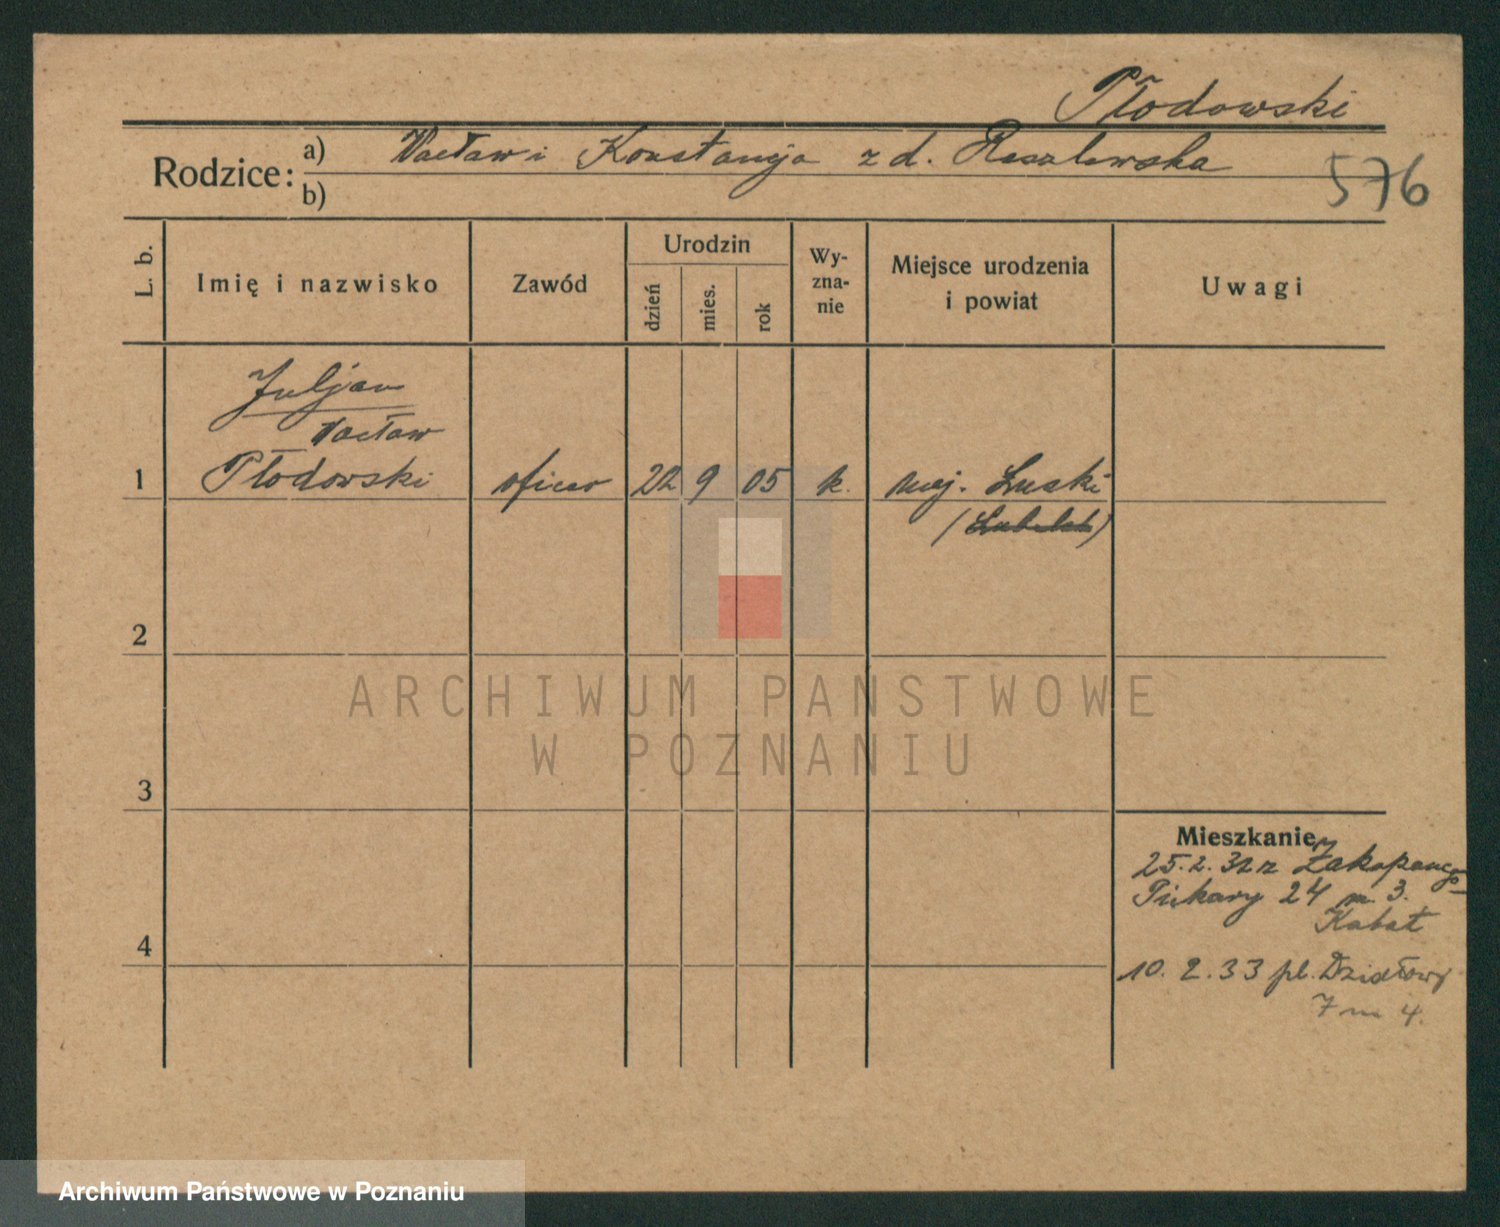 Płodowski
Rodzice:
a) Wacław i Konstancja z d. Roszlewska
b)
576
L. b.
Imię i nazwisko
Zawód
Urodzin
dzień
mies.
rok
Wy-
zna-
nie
Miejsce urodzenia
i powiat
Uwagi
Juljan
Wacław
1 Płodowski oficer 22 9 05 k. maj. Łuski
2
3
4
Mieszkanie
25.2.32 z Zakopanego
Piekary 24 m 3.
Kabat
10.2.33 pl. Działowy
7 m 4.
ARCHIWUM PANSTWOWE
W POZNANIU
Archiwum Państwowe w Poznaniu